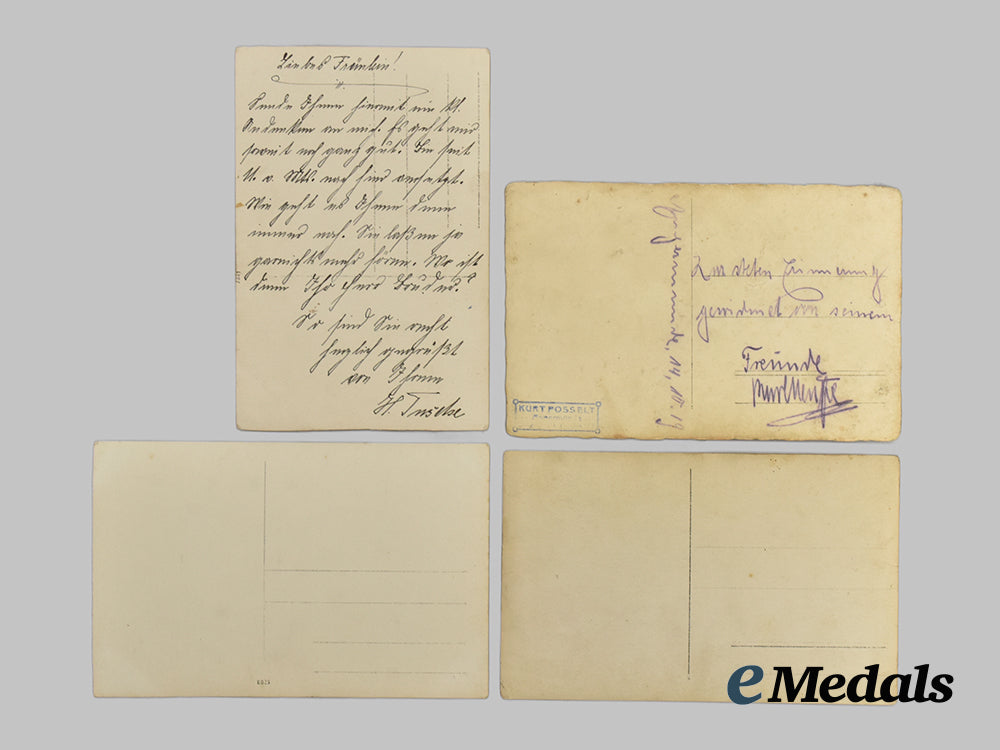 Liebes Fräulein!
Sende Ihnen hiermit ein kl.
Andenken an mich. Es geht mir
soweit noch ganz gut. Bin seit
11. v. Mts. nach hier versetzt.
Wie geht es Ihnen denn
immer noch. Sie laßen ja
garnichts mehr hören. Wo ist
denn Ihr Herr Bruder?
So sind Sie recht
herzlich gegrüßt
von Ihrem
H. Tusche
Zur steten Erinnerung
gewidmet von seinem
Freunde
14. 19
KURT POSSELT
6025
eMedals